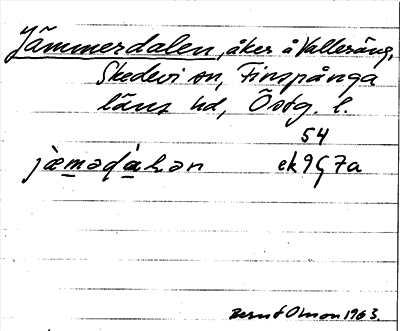 Jämmerdalen, åker å Vallersäng,
Skedevi sn, Finspånga
läns hd, Östg. l.
54
jæ̀məḍáʟən ek 9G7a
Bernt Olsson 1963.